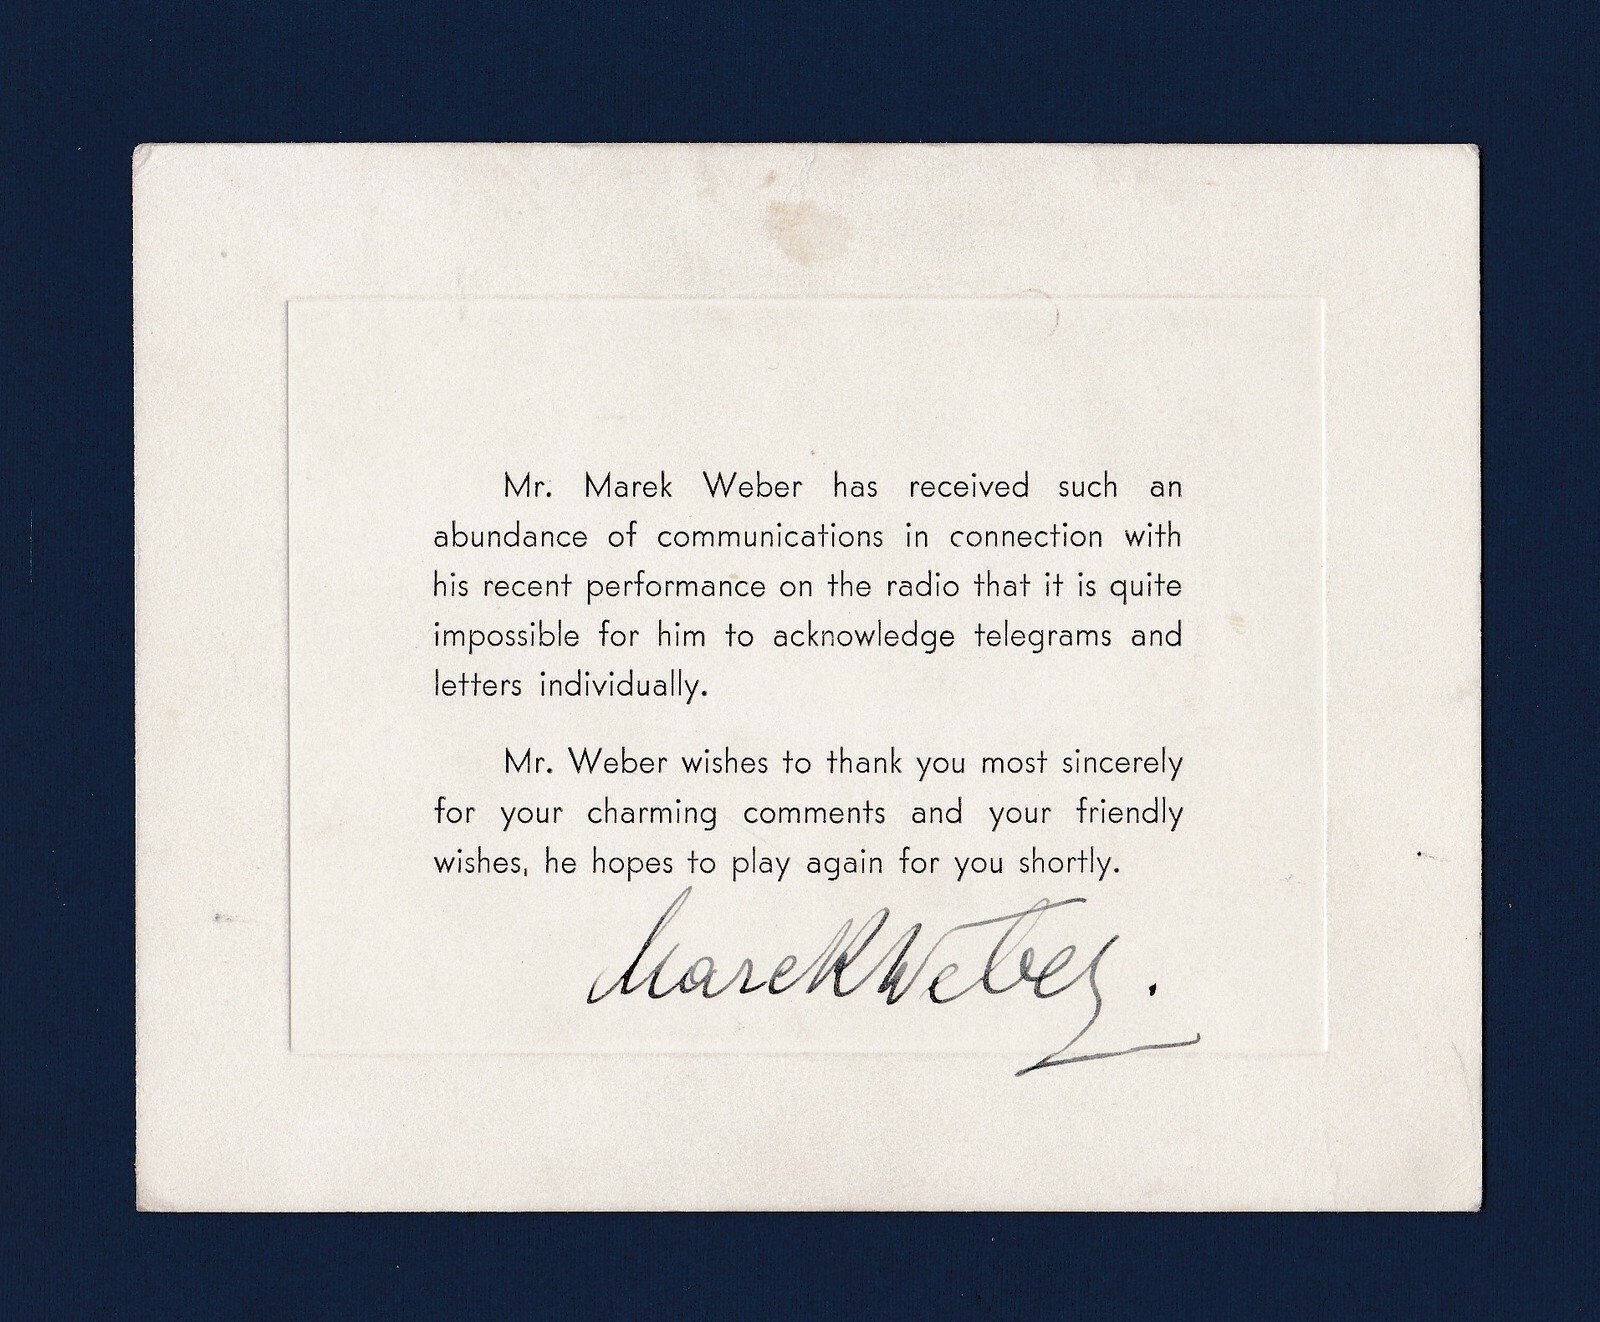 Mr. Marek Weber has received such an
abundance of communications in connection with
his recent performance on the radio that it is quite
impossible for him to acknowledge telegrams and
letters individually.
Mr. Weber wishes to thank you most sincerely
for your charming comments and your friendly
wishes, he hopes to play again for you shortly.
Marek Weber.